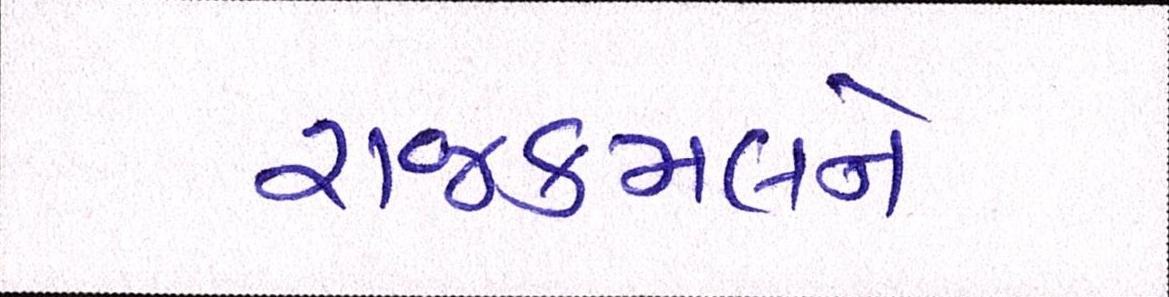 રાજકમલને